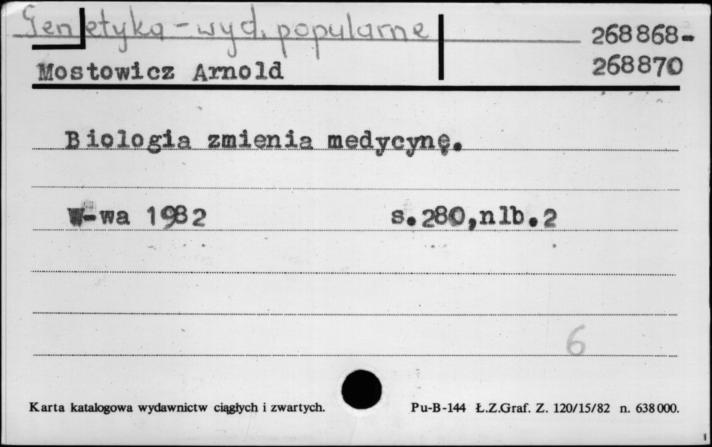 Genetyka - wyd. popularne
268868-
268870
Mostowicz Arnold
Biologia zmienia medycynę.
W-wa 1982 s.280,nlb.2
6
Karta katalogowa wydawnictw ciągłych i zwartych. Pu-B-144 Ł.Z.Graf. Z. 120/15/82 n. 638000.